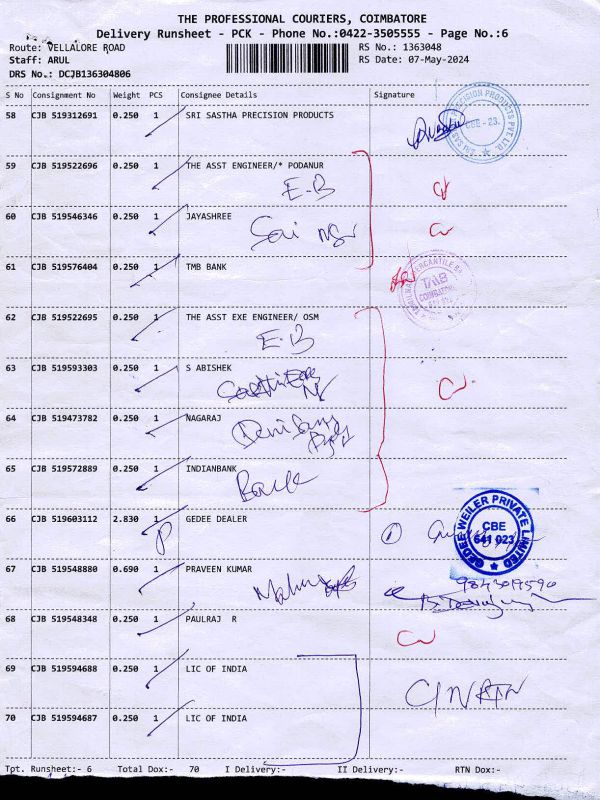 THE PROFESSIONAL COURIERS, COIMBATORE
Delivery Runsheet - PCK - Phone No.:0422-3505555 - Page No.:6
Route: VELLALORE ROAD RS No.: 1363048
Staff: ARUL RS Date: 07-May-2024
DRS No.: DCJB136304806
S No Consignment No Weight PCS Consignee Details Signature
58 CJB 519312691 0.250 1 SRI SASTHA PRECISION PRODUCTS
CBE - 23.
59 CJB 519522696 0.250 1 THE ASST ENGINEER/* PODANUR
E.B
60 CJB 519546346 0.250 1 JAYASHREE
Sai
61 CJB 519576404 0.250 1 TMB BANK
TMB
COIMBATORE
62 CJB 519522695 0.250 1 THE ASST EXE ENGINEER/ OSM
E.B
63 CJB 519593303 0.250 1 S ABISHEK
64 CJB 519473782 0.250 1 NAGARAJ
65 CJB 519572889 0.250 1 INDIANBANK
Bank
66 CJB 519603112 2.830 1 GEDEE DEALER
P
GEDEE WEILER PRIVATE LIMITED
CBE
641 023
67 CJB 519548880 0.690 1 PRAVEEN KUMAR
68 CJB 519548348 0.250 1 PAULRAJ R
69 CJB 519594688 0.250 1 LIC OF INDIA
70 CJB 519594687 0.250 1 LIC OF INDIA
Tpt. Runsheet:- 6 Total Dox:- 70 I Delivery:- II Delivery:- RTN Dox:-